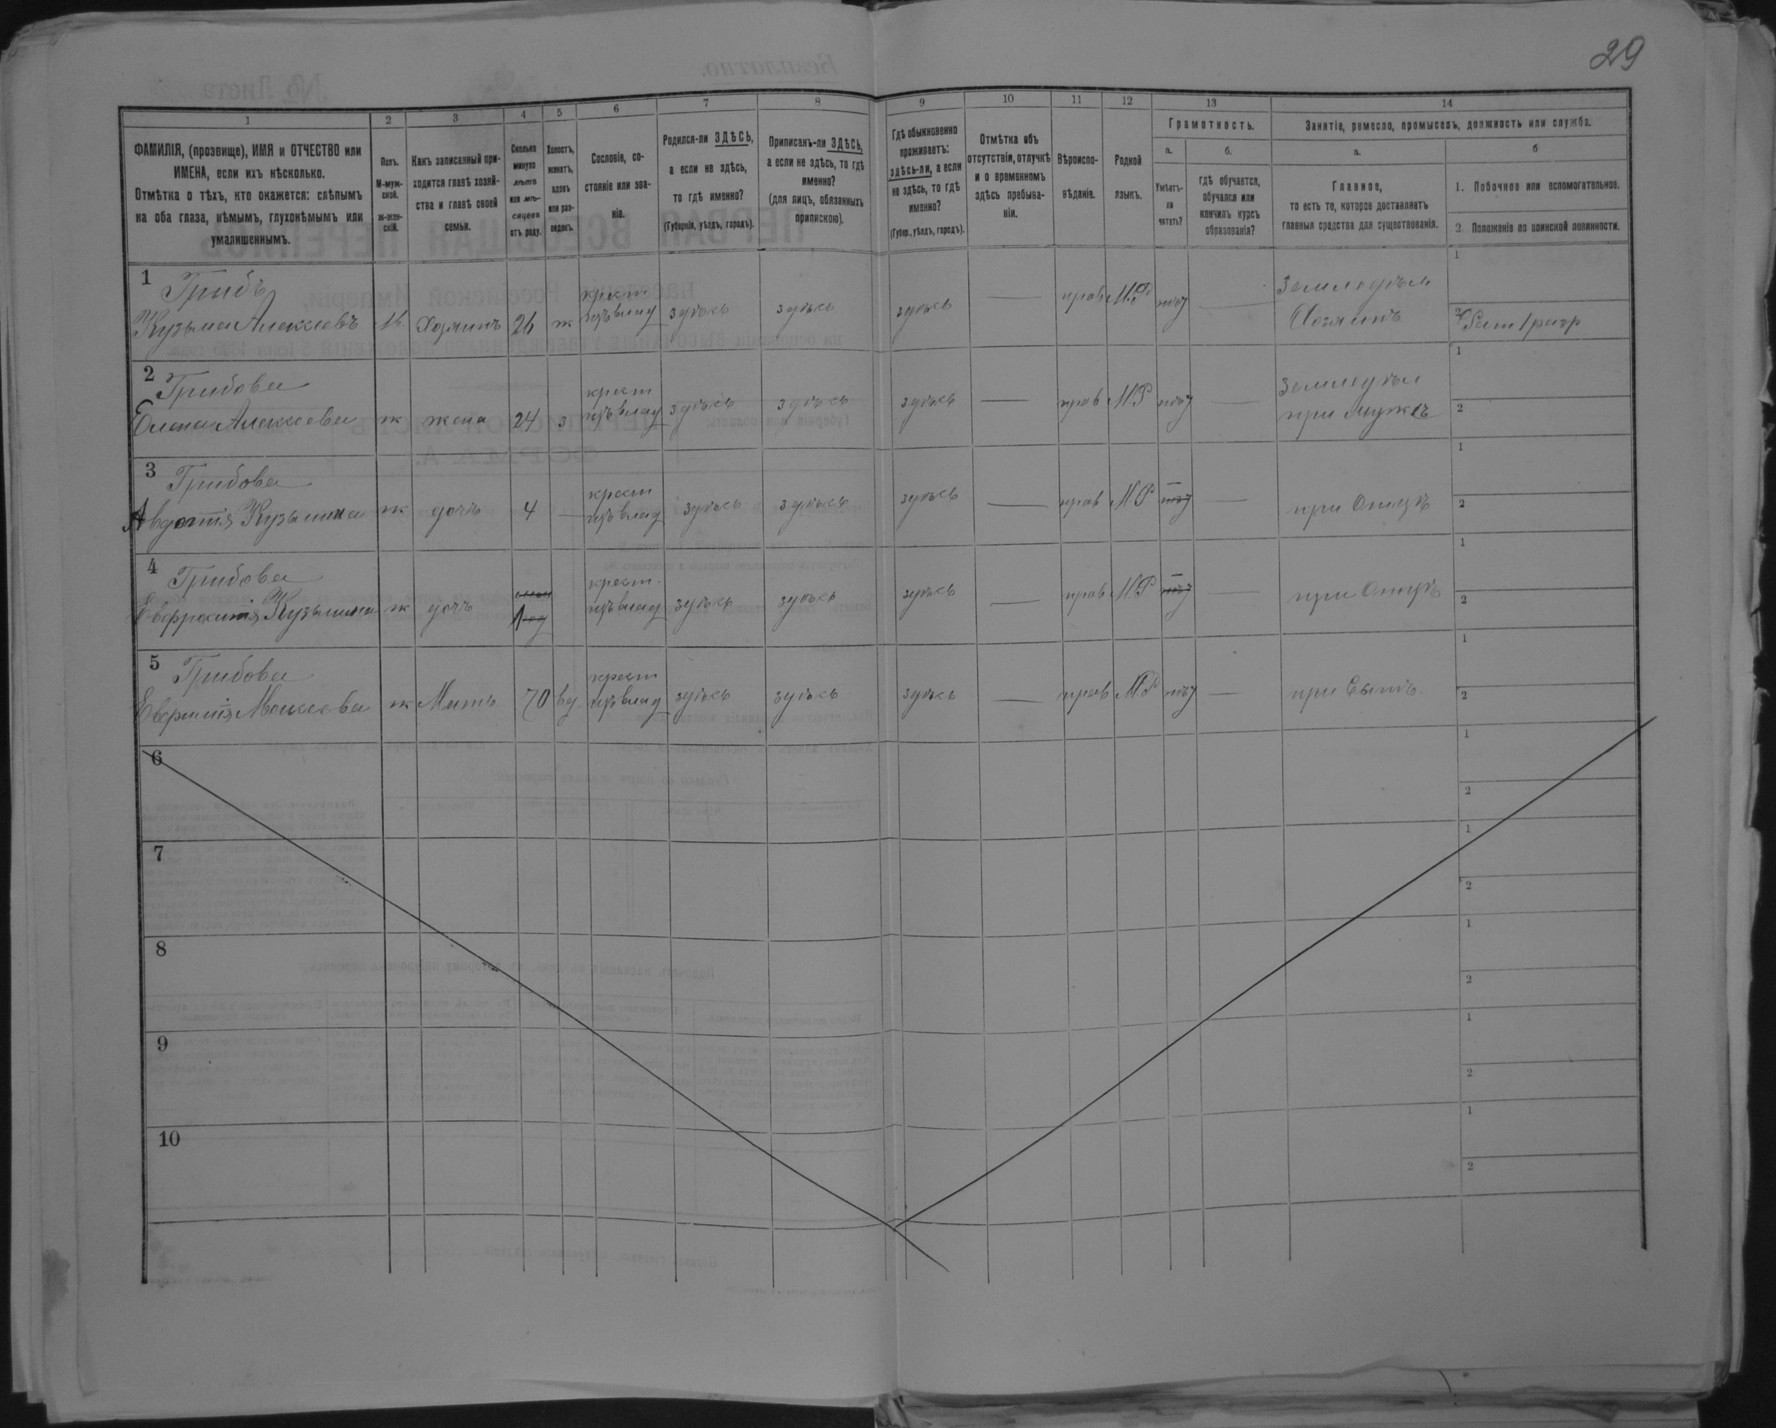 29
1 2 3 4 5 6 7 8 9 10 11 12 13 14
ФАМИЛІЯ, (прозвище), ИМЯ и ОТЧЕСТВО или
ИМЕНА, если ихъ нѣсколько.
Отмѣтка о тѣхъ, кто окажется: слѣпымъ
на оба глаза, нѣмымъ, глухонѣмымъ или
умалишеннымъ.
Полъ.
М-муж-
ской.
ж-жен-
скій.
Какъ записанный при-
ходится главѣ хозяй-
ства и главѣ своей
семьи.
Сколько
минуло
лѣтъ
или мѣ-
сяцевъ
отъ роду.
Холостъ,
женатъ,
вдовъ
или раз-
веденъ.
Сословіе, со-
стояніе или зва-
ніе.
Родился-ли ЗДѢСЬ,
а если не здѣсь,
то гдѣ именно?
(Губернія, уѣздъ, городъ).
Приписанъ-ли ЗДѢСЬ,
а если не здѣсь, то гдѣ
именно?
(для лицъ, обязанныхъ
припискою).
Гдѣ обыкновенно
проживаетъ:
здѣсь-ли, а если
не здѣсь, то гдѣ
именно?
(Губер., уѣздъ, городъ).
Отмѣтка объ
отсутствіи, отлучкѣ
и о временномъ
здѣсь пребыва-
ніи.
Вѣроиспо-
вѣданіе.
Родной
языкъ.
Грамотность.
а.
Умѣетъ-
ли
читать?
б.
гдѣ обучается,
обучался или
кончилъ курсъ
образованія?
Занятіе, ремесло, промыселъ, должность или служба.
а.
Главное,
то есть то, которое доставляетъ
главныя средства для существованія.
б
1. Побочное или вспомогательное.
2. Положеніе по воинской повинности.
1 Грибъ крест Земледѣл 1
Кузьма Алексеевъ М. Хозяинъ 26 ж здѣсь здѣсь здѣсь — прав М.Р. — Хозяинъ 2
2 Грибова крест Земледѣл 1
Елена Алексеева ж жена 24 з здѣсь здѣсь здѣсь — прав М.Р — при мужѣ 2
3 Грибова крест 1
Авдотія Кузьмина ж дочь 4 — здѣсь здѣсь здѣсь — прав М.Р — при Отцѣ 2
4 Грибова крест. 1
Кузьмина ж дочь здѣсь здѣсь здѣсь — прав М.Р — при Отцѣ 2
5 Грибова крест 1
Моисеева ж Мать 70 вд здѣсь здѣсь здѣсь — прав М.Р — при Сынѣ 2
6 1
2
7 1
2
8 1
2
9 1
2
10 1
2